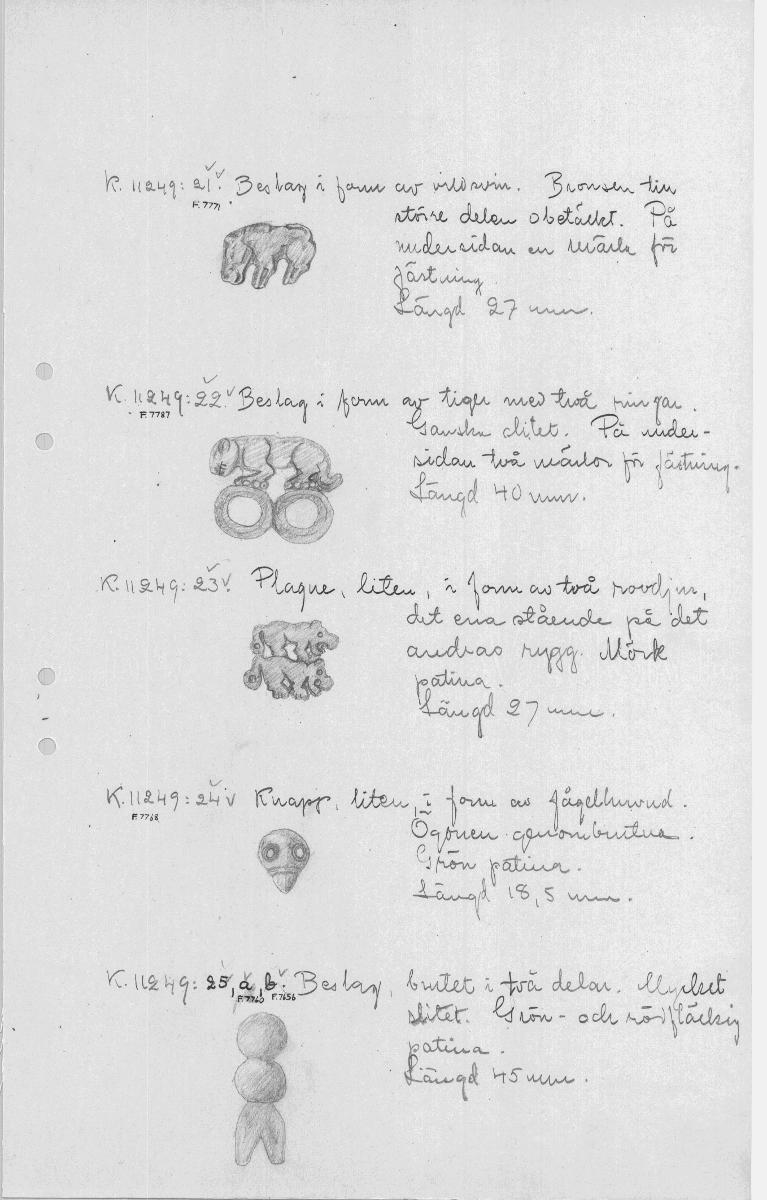 K. 11249: 21. Beslag i form av vildsvin. Bronsen till
F. 7771
större delen obetäckt. På
undersidan en märla för
fästning.
Längd 27 mm.
K. 11249: 22. Beslag i form av tiger med två ringar.
F. 7787
Ganska slitet. På under-
sidan två märlor för fästning.
Längd 40 mm.
K. 11249: 23. Plaque, liten, i form av två rovdjur,
det ena stående på det
andras rygg. Mörk
patina.
Längd 27 mm.
K. 11249: 24 Knapp, liten, i form av fågelhuvud.
F. 7768
Ögonen genombrutna.
Grön patina.
Längd 18,5 mm.
K. 11249: 25, a, b. Beslag, brutet i två delar. Mycket
F. 7760 F. 7656
slitet. Grön- och rödfläckig
patina.
Längd 45 mm.